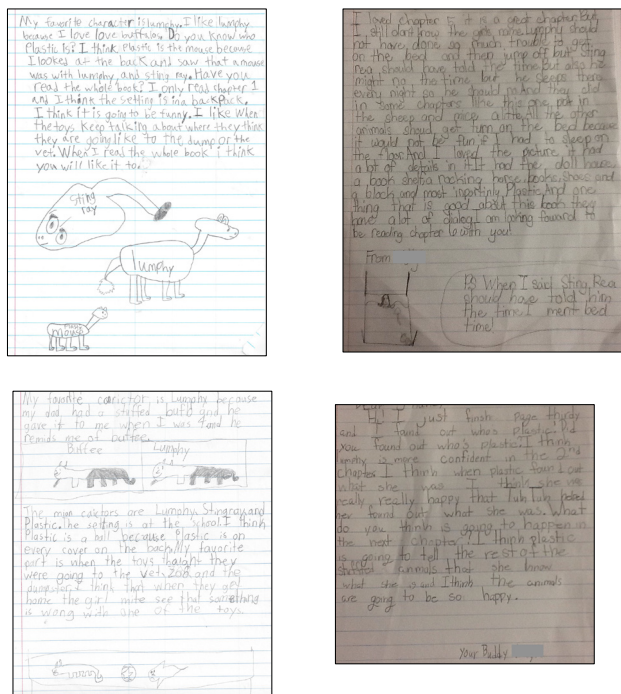 My favorite character is lumphy. I like lumphy
because I love love buffalow. Do you know who
Plastic is? I think Plastic is the mouse because
I looked at the back and saw that a mouse
was with lumphy and sting ray. Have you
read the whole book? I only read chapter 1
and I think the setting is in a backpack.
I think it is going to be funny. I like when
the toys keep talking about where they think
they are going like to the dump or the
vet. When I read the whole book i think
you will like it to.
Sting
ray
lumphy
mouse
I loved chapter 5 it is a great chapter but
I still dont know the girls name lumphy should
not have done so much trouble to get
on the bed and then jump off but Sting
Rea should have told him the time but also he
might no the time but he sleeps there
every night so he should no And they did
in some chapters like this one put in
the sheep and mice a little all the other
animals should get turn on the bed because
it would not be fun if I had to sleep on
the floor And I loved the picture it had
a lot of details in it had the doll house
a book shelf a rocking horse books shoes and
a block and most inportinly Plastic And one
thing that is good about this book they
have alot of dialog I am looking foward to
be reading chapter 6 with you!
From
PS When I said Sting Rea
should have told him
the time I ment bed
time!
My favorite carictor is Lumphy because
my dad had a stuffed bufo and he
gave it to me when I was 4 and he
remids me of buffee.
Buffee Lumphy
The main carictors are Lumphy, Stingray and
Plastic. the setting is at the school. I think
Plastic is a ball because Plastic is on
every cover on the back. My favorite
part is when the toys thaight they
were going to the vet, zoo and the
dump. I think that when they get
home the girl mite see that something
is wong with one of the toys.
Hi I just finish page thurdy
and I found out whos plastic. Did
you found out who's plastic? I think
lumphy is more confident in the 2nd
chapter. I think when plastic found out
what she was I think she was
really really happy that Tuh Tuh helped
her found out what she was. What
do you think is going to happen in
the next chapter? I think plastic
is going to tell the rest of the
animals that she know
what she is and I think the animals
are going to be so happy.
Your Buddy